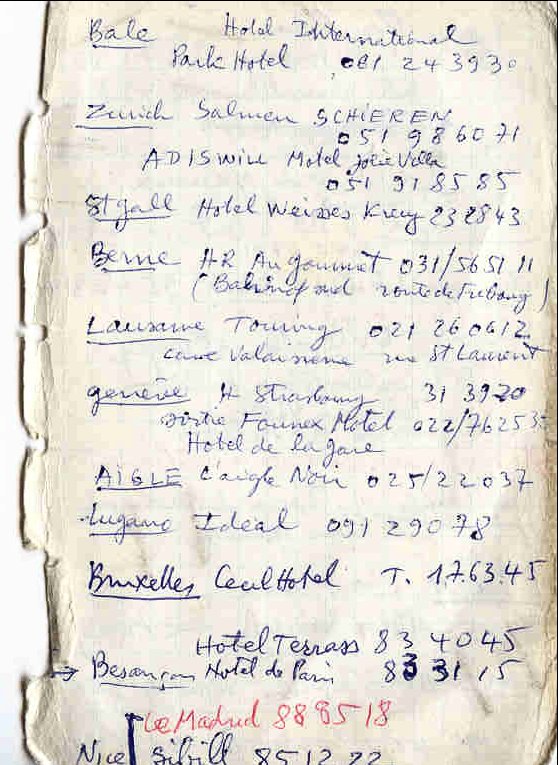 Bale Hotel International
Park Hotel 061 243930
Zurich Salmen SCHIEREN
051 986071
ADISWILL Motel jolie Villa
051 918585
St gall Hotel Weisses Kreuz 232843
Berne H.R Au gourmet 031/565111
(Bahnhof route de Fribourg)
Lausanne Touring 021 260612
cave Valaisanne rue St Laurent
genève H Strasbourg 31 3920
sortie Founex Motel 022/76253
Hotel de la gare
AIGLE L'aigle Noir 025/22037
Lugano Ideal 091 29078
Bruxelles Cecil Hotel T. 17.63.45
Hotel Terrass 83 4045
→ Besançon Hotel de Paris 83 31 15
Le Madrid 888518
Nice Sibill 851222